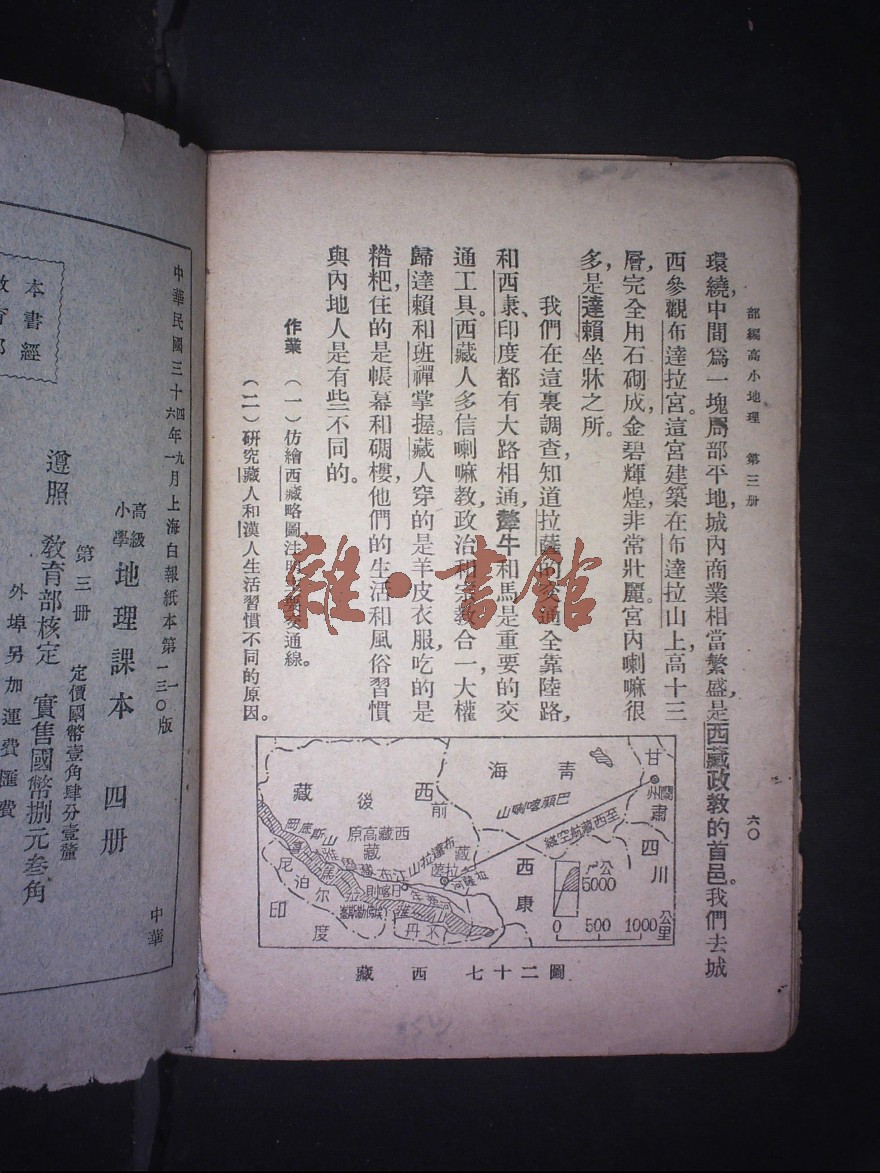 部編高小地理　第三册
六〇
環繞，中間爲一塊局部平地，城內商業相當繁盛，是西藏政教的首邑。我們去城
西參觀布達拉宮。這宮建築在布達拉山上，高十三
層，完全用石砌成，金碧輝煌，非常壯麗。宮內喇嘛很
多，是達賴坐牀之所。
我們在這裏調查，知道拉薩的交通全靠陸路，
和西康、印度都有大路相通，犛牛和馬是重要的交
通工具。西藏人多信喇嘛教，政治和宗教合一，大權
歸達賴和班禪掌握。藏人穿的是羊皮衣服，吃的是
糌粑，住的是帳幕和碉樓，他們的生活和風俗習慣
與內地人是有些不同的。
作業　(一)仿繪西藏略圖，注明主要交通線。
(二)研究藏人和漢人生活習慣不同的原因。
甘肅
蘭州
青海
四川
西康
巴顏喀喇山
前藏
後藏
西
西藏高原
拉薩
拉薩河
布達拉山
日喀則
尼泊爾
不丹
印度
公尺
5000
0　500　1000公里
圖二十七　西藏
中華民國三十四年九月上海白報紙本第一版
六　一　三〇
高級小學地理課本　四册
第三册　定價國幣壹角肆分壹釐
遵照　教育部核定　實售國幣捌元叁角
外埠另加運費匯費
中華
本書經
教育部
雜·書館